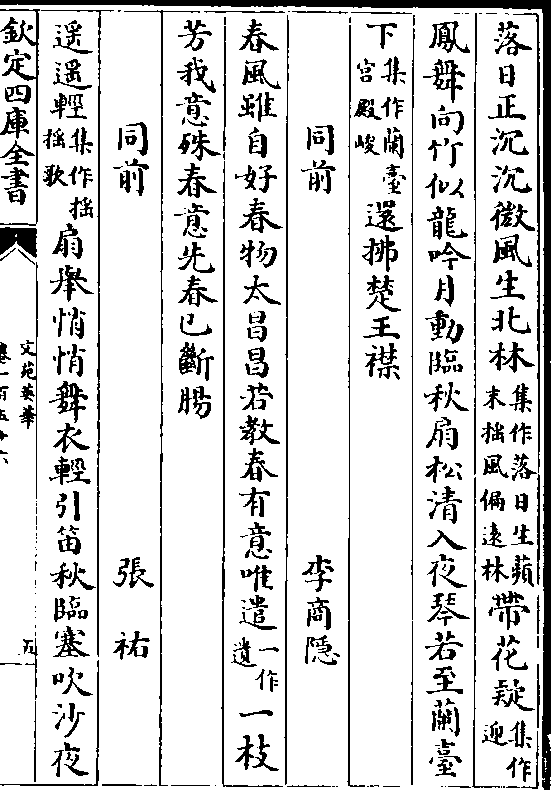 落日正沉沉微風生北林集作落日生蘋末揺風偏遠林帶花疑集作迎
鳳舞向竹似龍吟月動臨秋扇松清入夜琴若至蘭臺
下集作蘭臺宮殿峻還拂楚王襟
同前 李商隠
春風雖自好春物太昌昌若教春有意唯遣一作遺一枝
芳我意殊春意先春已斷腸
同前 張祐
遥遥輕集作揺揺歌扇舉悄悄舞衣輕引笛秋臨塞吹沙夜
欽定四庫全書
文苑英華
卷一百五十六
五